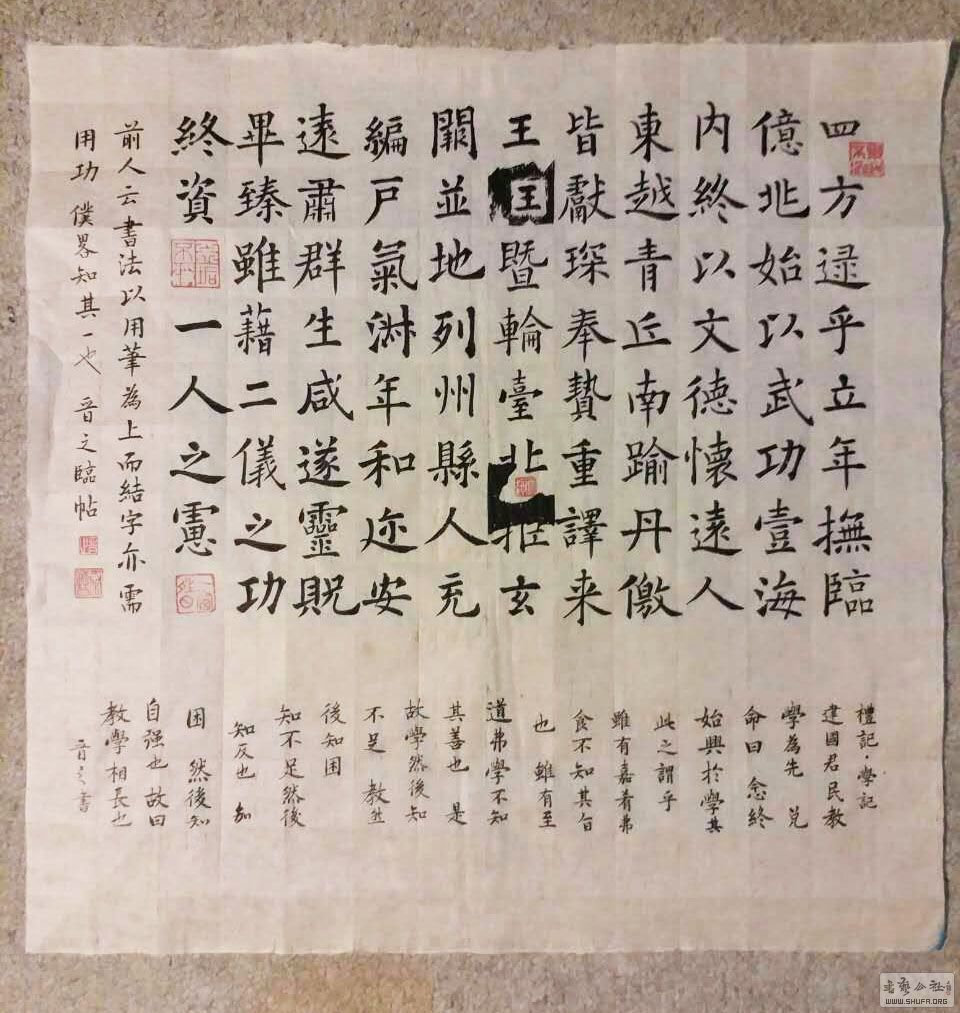 四方逮乎立年撫臨
億兆始以武功壹海
內終以文德懷遠人
東越青丘南踰丹儌
皆獻琛奉贄重譯来
王暨輪臺北拒玄
闕並地列州縣人充
編戶氣淋年和迩安
遠肅群生咸遂靈貺
畢臻雖藉二儀之功
終資一人之慮
前人云書法以用筆為上而結字亦需
用功 僕畧知其一也 晉之臨帖
禮記·學記
建國君民教
學為先 兌
命曰 念終
始興於學其
此之謂乎
雖有嘉肴弗
食不知其旨
也 雖有至
道弗學不知
其善也 是
故學然後知
不足 教然
後知困
知不足然後
知反也 知
困 然後知
自强也 故曰
教學相長也
晉之書
书艺公社
WWW.SHUFA.ORG